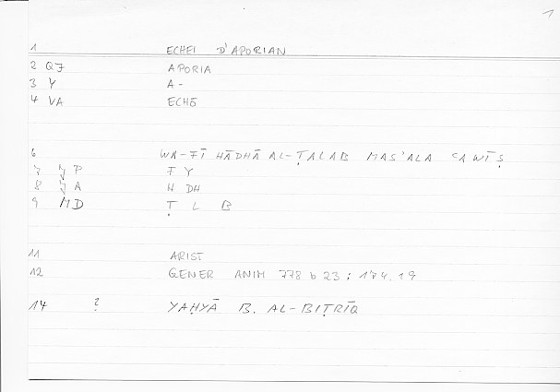 1
1 ECHEI D'APORIAN
2 QJ APORIA
3 Y A-
4 VA ECHĒ
6 WA-FĪ HĀDHĀ AL-ṬALAB MAS'ALA ʿAWĪṢ
7 P F Y
8 A H DH
9 MD Ṭ L B
11 ARIST
12 GENER ANIM 778 b 23 : 174.19
14 ? YAḤYĀ B. AL-BIṬRĪQ